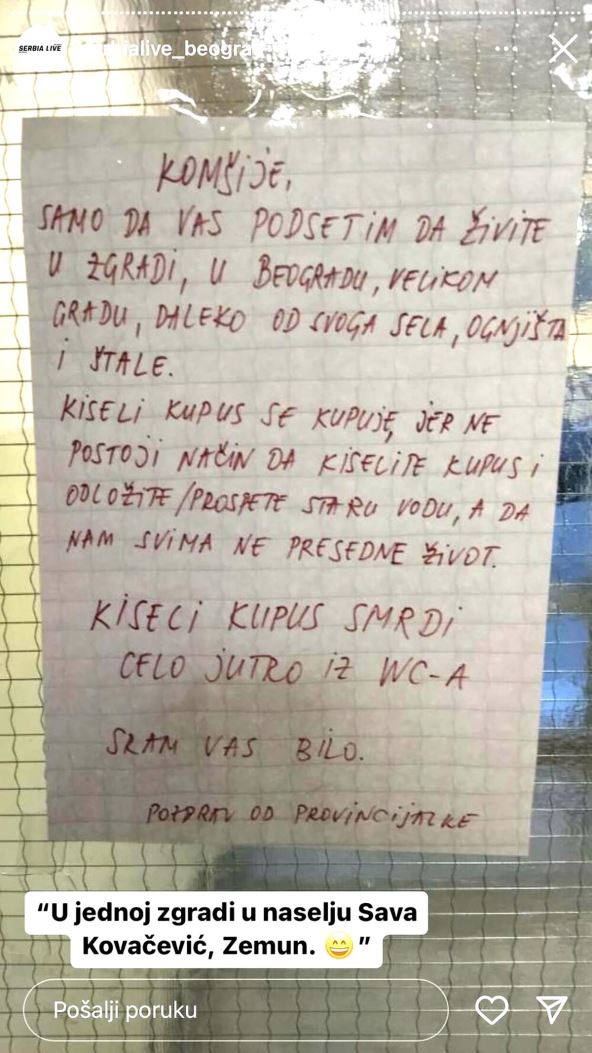 SERBIA LIVE
KOMŠIJE,
SAMO DA VAS PODSETIM DA ŽIVITE
U ZGRADI, U BEOGRADU, VELIKOM
GRADU, DALEKO OD SVOGA SELA, OGNJIŠTA
I ŠTALE.
KISELI KUPUS SE KUPUJE, JER NE
POSTOJI NAČIN DA KISELITE KUPUS I
ODLOŽITE/PROSPETE STARU VODU, A DA
NAM SVIMA NE PRESEDNE ŽIVOT.
KISELI KUPUS SMRDI
CELO JUTRO IZ WC-A
SRAM VAS BILO.
POZDRAV OD PROVINCIJALKE
“U jednoj zgradi u naselju Sava
Kovačević, Zemun. 😄”
Pošalji poruku